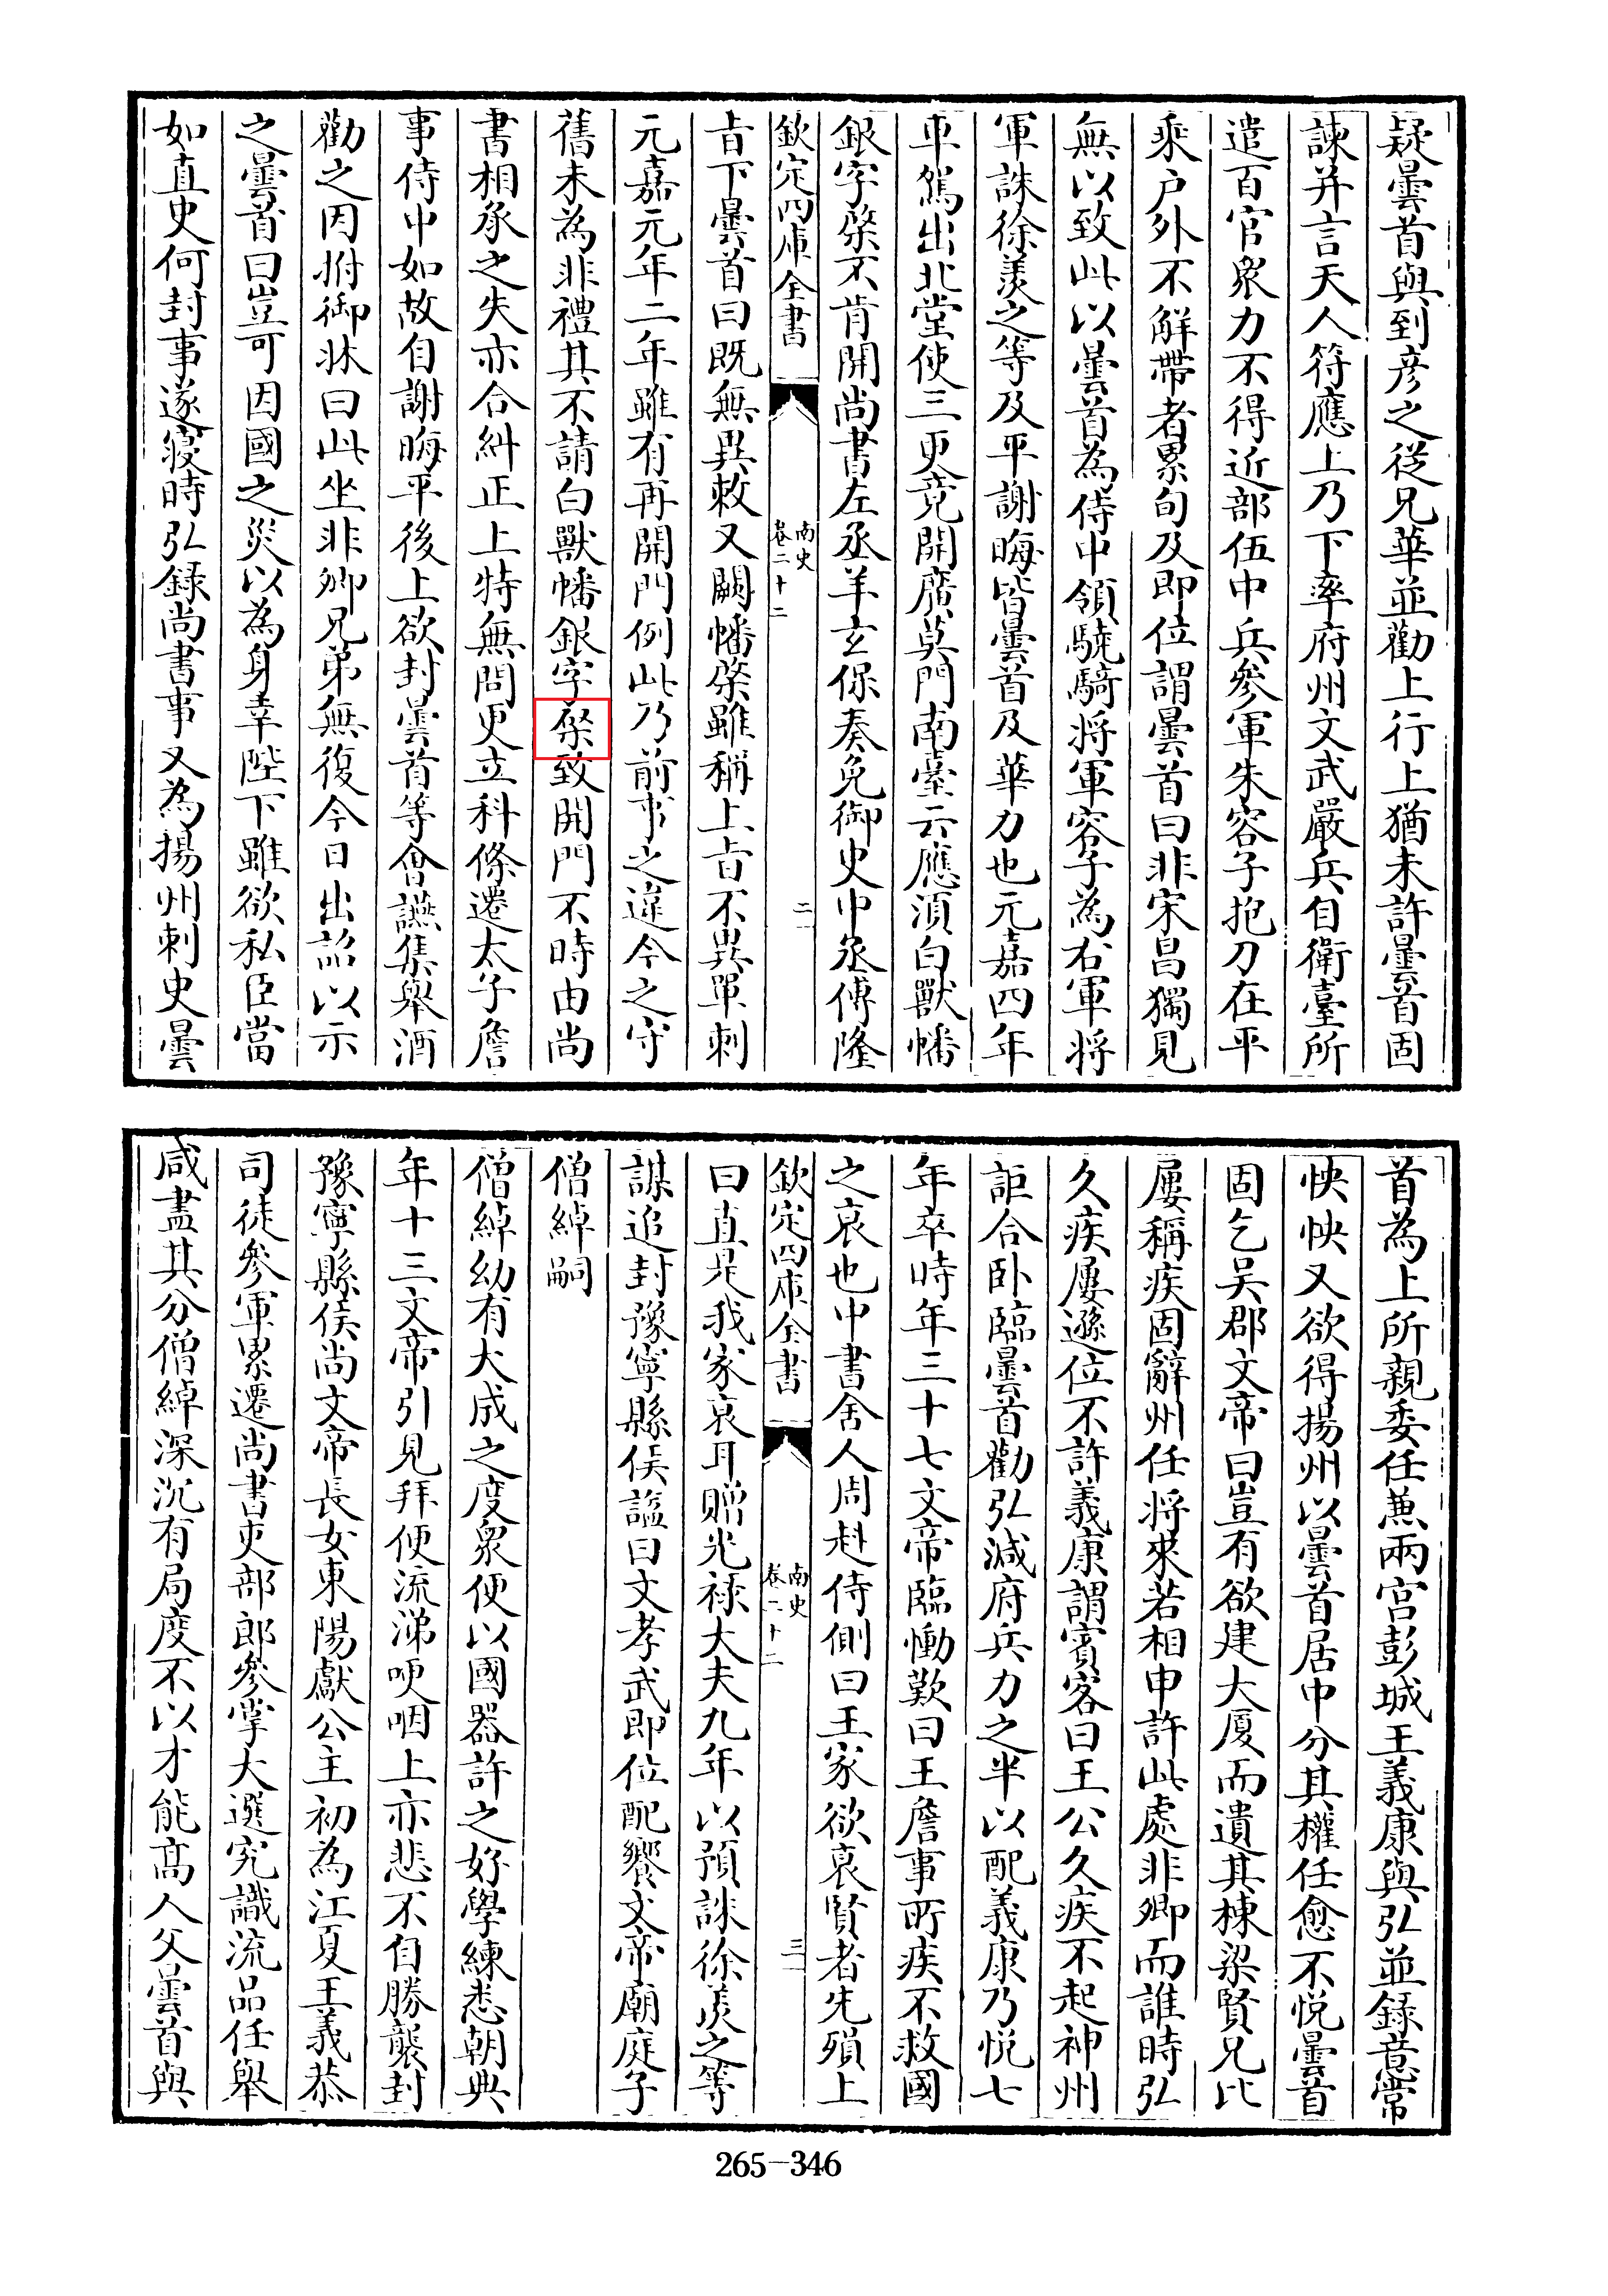 疑曇首與到彦之從兄華並勸上行上猶未許曇首固
諫并言天人符應上乃下率府州文武嚴兵自衛臺所
遣百官衆力不得近部伍中兵參軍朱容子抱刀在平
乘户外不解帶者累旬及即位謂曇首曰非宋昌獨見
無以致此以曇首為侍中領驍騎將軍容子為右軍將
軍誅徐羨之等及平謝晦皆曇首及華力也元嘉四年
車駕出北堂使三更竟開廣莫門南臺云應須白獸幡
銀字棨不肯開尚書左丞羊玄保奏免御史中丞傅隆
欽定四庫全書
南史
卷二十二
二
㫖下曇首曰既無異敕又闕幡棨雖稱上㫖不異單刺
元嘉元年二年雖有再開門例此乃前事之違今之守
舊未為非禮其不請白獸幡銀字棨致開門不時由尚
書相承之失亦合糾正上特無問更立科條遷太子詹
事侍中如故自謝晦平後上欲封曇首等會讌集舉酒
勸之因拊御牀曰此坐非卿兄弟無復今日出詔以示
之曇首曰豈可因國之災以為身幸陛下雖欲私臣當
如直史何封事遂寢時弘錄尚書事又為揚州刺史曇
首為上所親委任兼兩宫彭城王義康與弘並錄意常
怏怏又欲得揚州以曇首居中分其權任愈不悦曇首
固乞吳郡文帝曰豈有欲建大厦而遺其棟梁賢兄比
屢稱疾固辭州任將來若相申許此處非卿而誰時弘
久疾屢遜位不許義康謂賓客曰王公久疾不起神州
詎合卧臨曇首勸弘減府兵力之半以配義康乃悦七
年卒時年三十七文帝臨慟歎曰王詹事所疾不救國
之哀也中書舍人周赳侍側曰王家欲衰賢者先殞上
欽定四庫全書
南史
卷二十二
三
曰直是我家衰耳贈光禄大夫九年以預誅徐羨之等
謀追封豫寧縣侯諡曰文孝武即位配饗文帝廟庭子
僧綽嗣
僧綽幼有大成之度衆便以國器許之好學練悉朝典
年十三文帝引見拜便流涕哽咽上亦悲不自勝襲封
豫寧縣侯尚文帝長女東陽獻公主初為江夏王義恭
司徒參軍累遷尚書吏部郎參掌大選究識流品任舉
咸盡其分僧綽深沉有局度不以才能高人父曇首與
265-346